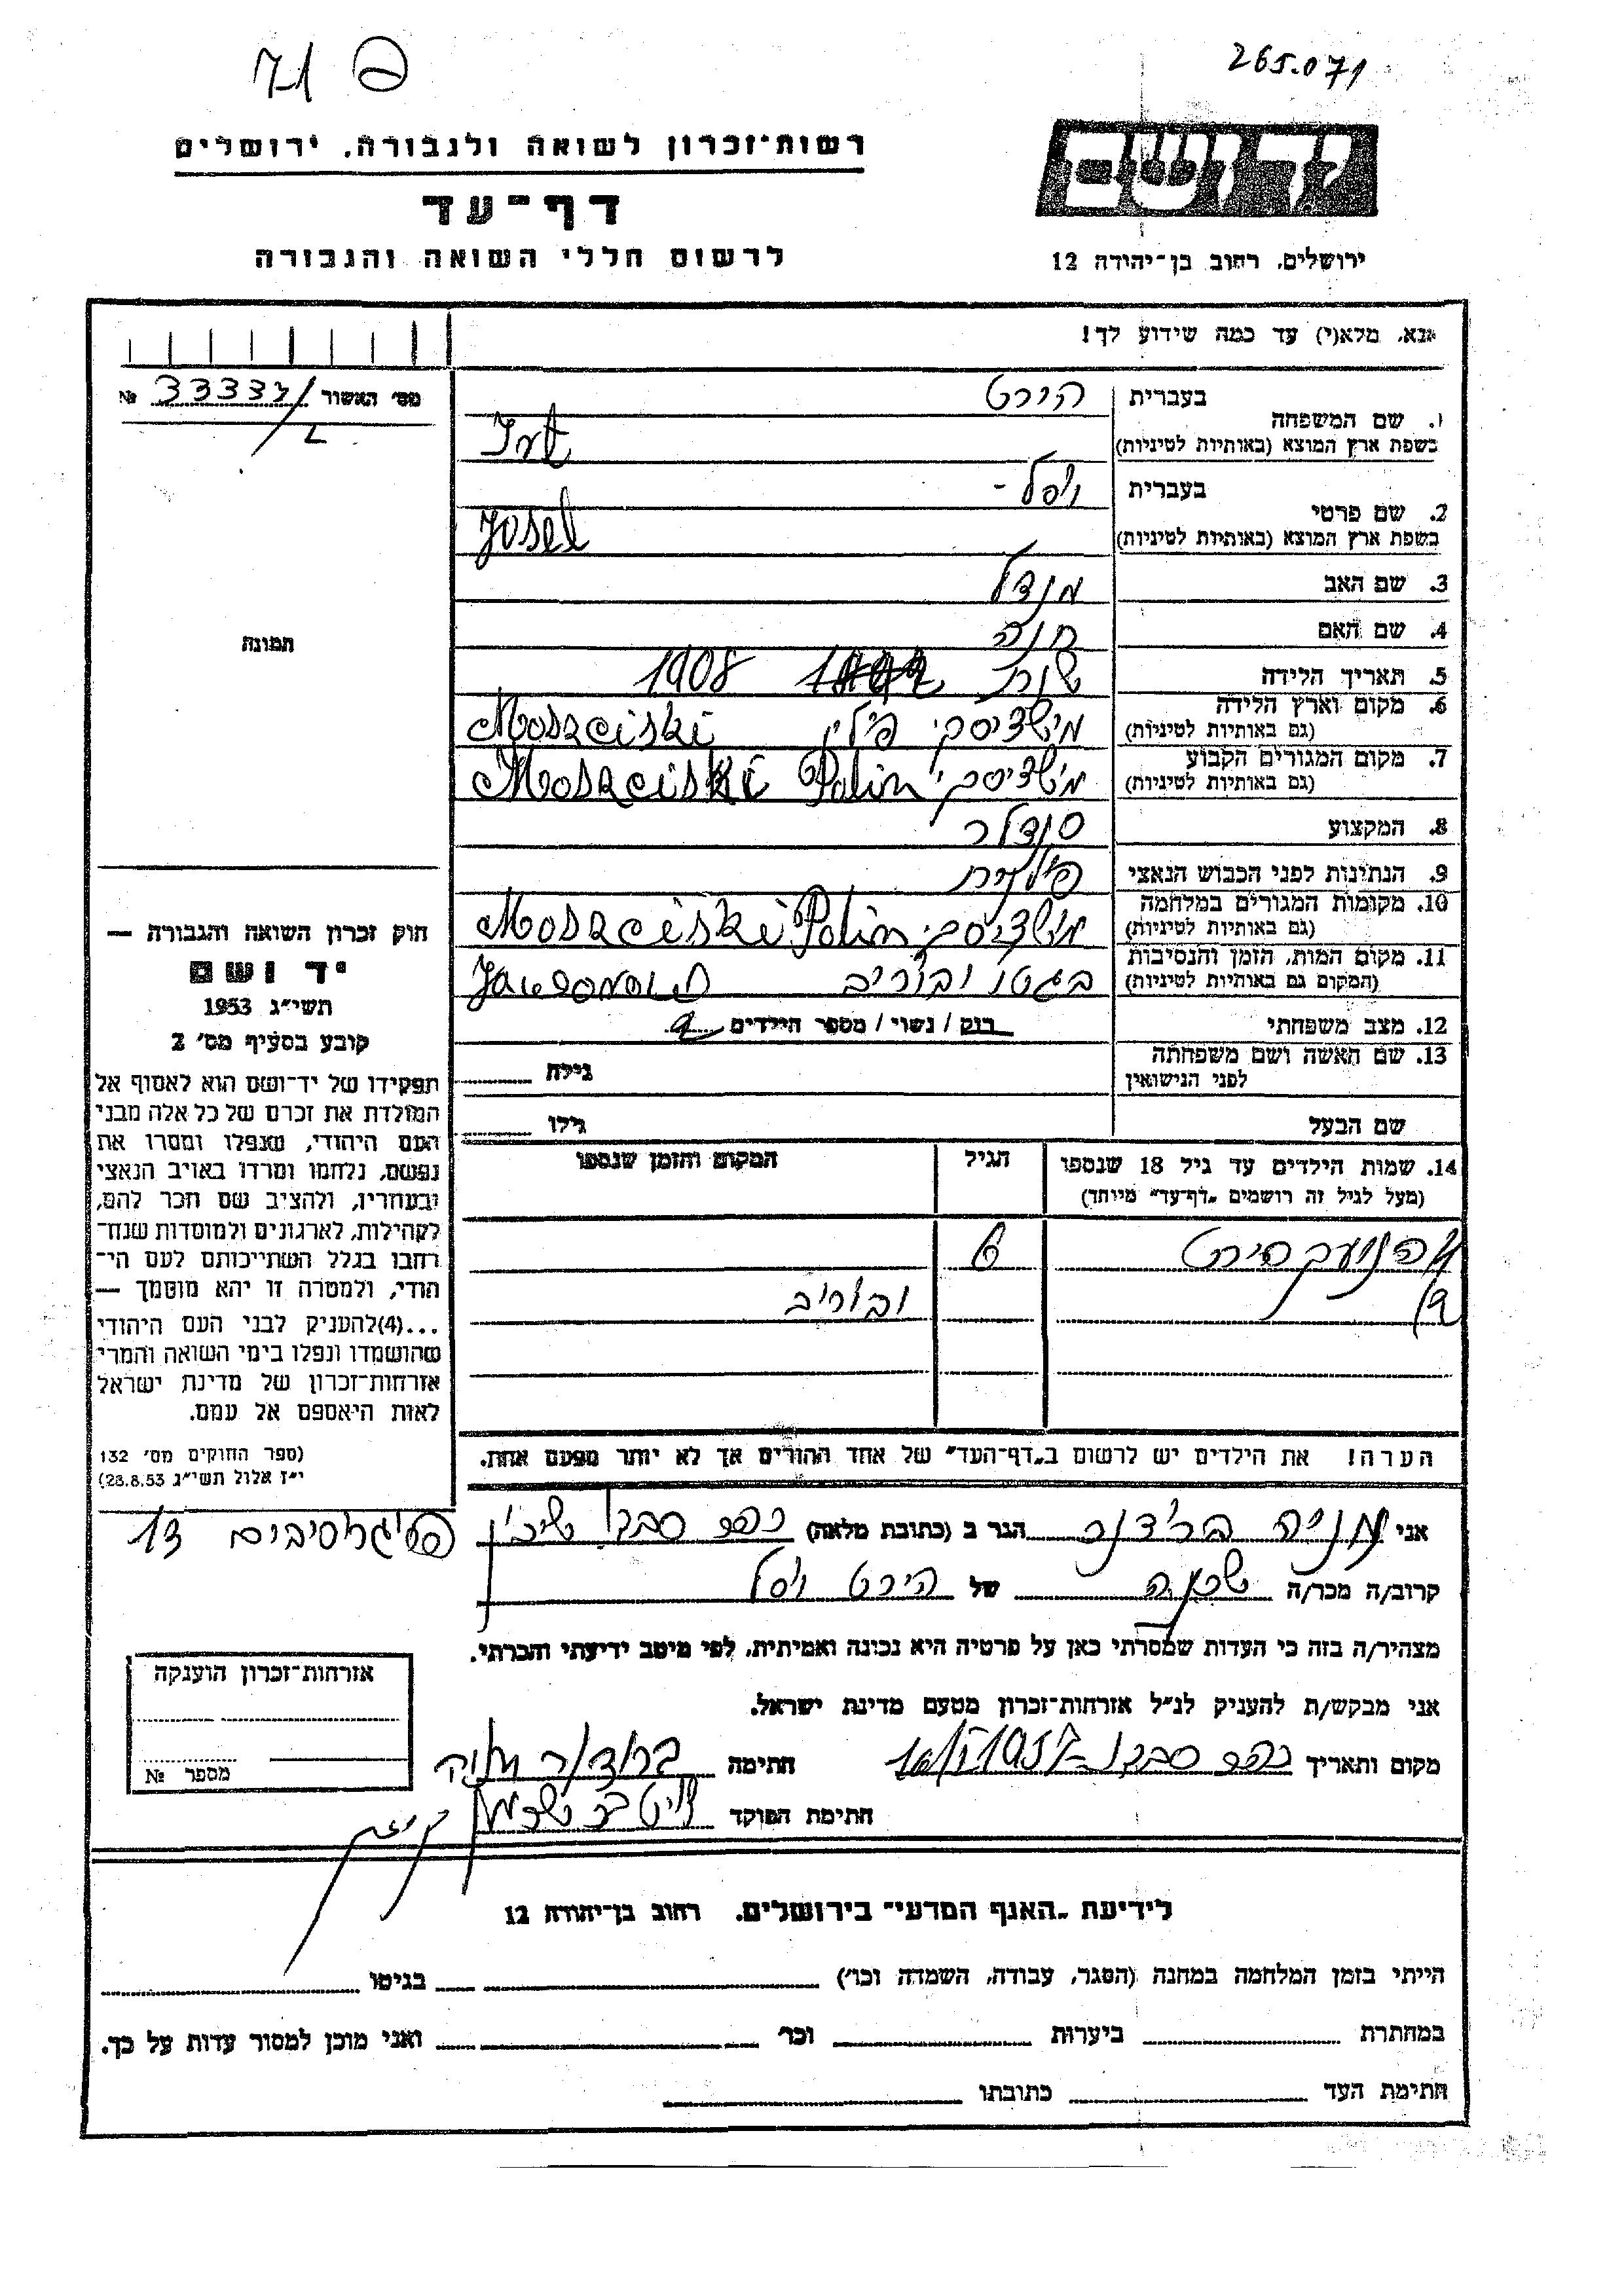 71 ה
265.071
רשות־זכרון לשואה ולגבורה, ירושלים
דף־עד
לרשום חללי השואה והגבורה
יד ושם
ירושלים, רחוב בן־יהודה 12
נא, מלא(י) עד כמה שידוע לך!
מס׳ האשור № 33332/
1. שם המשפחה
בעברית הירט
בשפת ארץ המוצא (באותיות לטיניות) Irt
2. שם פרטי
בעברית יוסל -
בשפת ארץ המוצא (באותיות לטיניות) Josel
3. שם האב מנדל
4. שם האם חנה
5. תאריך הלידה שנת 1908
6. מקום וארץ הלידה
(גם באותיות לטיניות) פולין Moszciski
7. מקום המגורים הקבוע
(גם באותיות לטיניות) Moszciski Polin
8. המקצוע סנדלר
9. הנתינות לפני הכבוש הנאצי פולנית
10. מקומות המגורים במלחמה
(גם באותיות לטיניות) Moszciski Polin
11. מקום המות, הזמן והנסיבות
(המקום גם באותיות לטיניות) בגטו
12. מצב משפחתי רוק / נשוי / מספר הילדים 2
13. שם האשה ושם משפחתה
לפני הנישואין גילה
שם הבעל גילו
14. שמות הילדים עד גיל 18 שנספו
(מעל לגיל זה רושמים „דף־עד״ מיוחד)
הגיל
המקום והזמן שנספו
הירט 6
הערה! את הילדים יש לרשום ב„דף־העד״ של אחד ההורים אך לא יותר מפעם אחת.
תמונה
חוק זכרון השואה והגבורה —
יד ושם
תשי״ג 1953
קובע בסעיף מס׳ 2
תפקידו של יד־ושם הוא לאסוף אל
המולדת את זכרם של כל אלה מבני
העם היהודי, שנפלו ומסרו את
נפשם, נלחמו ומרדו באויב הנאצי
ובעוזריו, ולהציב שם וזכר להם,
לקהילות, לארגונים ולמוסדות שנח־
רבו בגלל השתייכותם לעם הי־
הודי, ולמטרה זו יהא מוסמך —
...(4)להעניק לבני העם היהודי
שהושמדו ונפלו בימי השואה והמרי
אזרחות־זכרון של מדינת ישראל
לאות היאספם אל עמם.
(ספר החוקים מס׳ 132
י״ז אלול תשי״ג 28.8.53)
אני הגר ב (כתובת מלאה) כפר סבא שיכון 13
קרוב/ה מכר/ה שכנה של הירט יוסל
מצהיר/ה בזה כי העדות שמסרתי כאן על פרטיה היא נכונה ואמיתית, לפי מיטב ידיעתי והכרתי.
אני מבקש/ת להעניק לנ״ל אזרחות־זכרון מטעם מדינת ישראל.
מקום ותאריך כפר סבא חתימה
חתימת הפוקד
אזרחות־זכרון הוענקה
מספר №
לידיעת „האגף המדעי״ בירושלים, רחוב בן־יהודה 12
הייתי בזמן המלחמה במחנה (הסגר, עבודה, השמדה וכו׳) בגיטו
במחתרת ביערות וכו׳ ואני מוכן למסור עדות על כך.
חתימת העד כתובתו